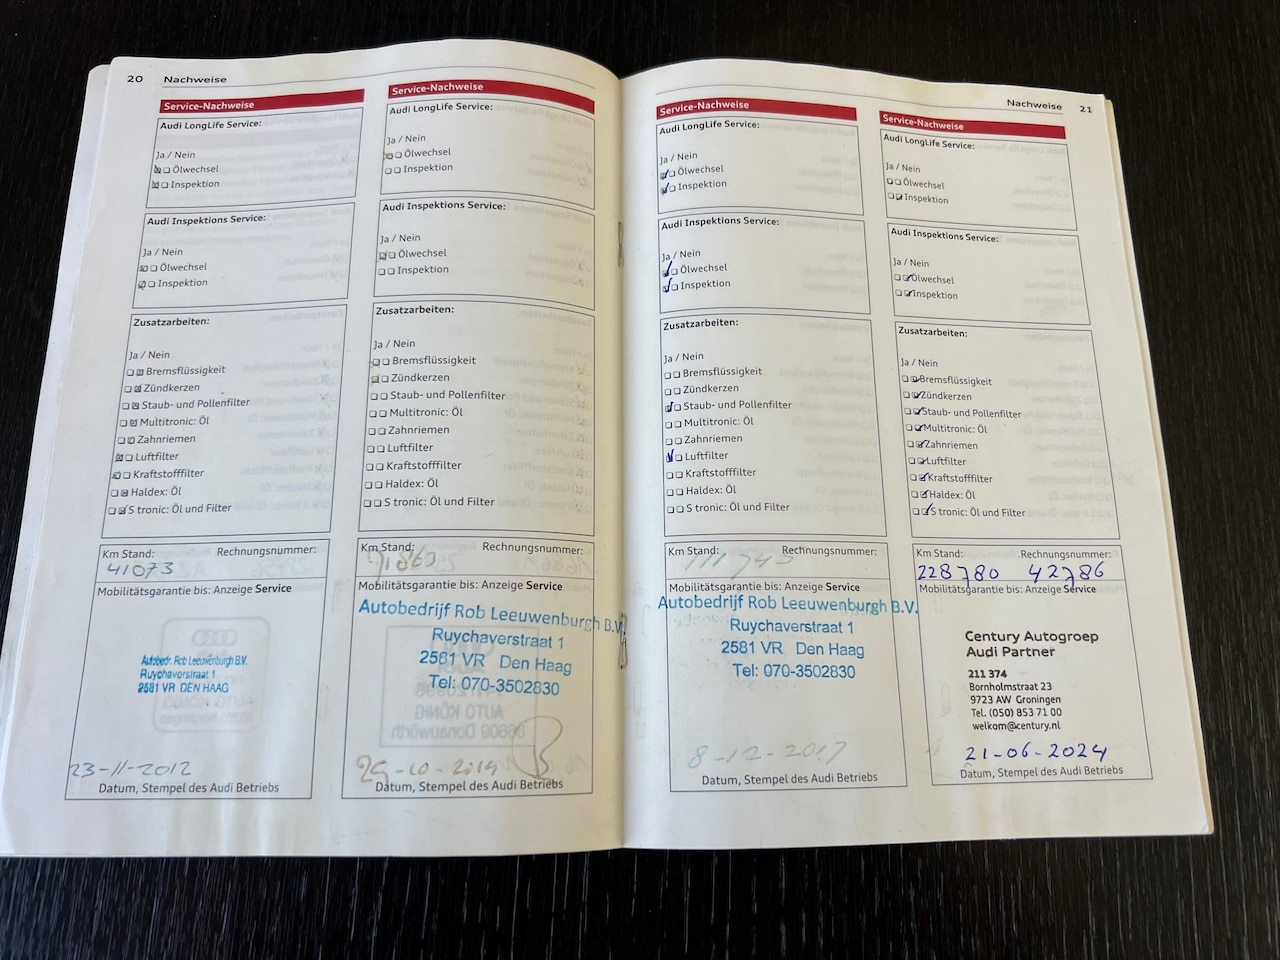 20 Nachweise
Service-Nachweise
Audi LongLife Service:
Ja / Nein
Ölwechsel
Inspektion
Audi Inspektions Service:
Ja / Nein
Ölwechsel
Inspektion
Zusatzarbeiten:
Ja / Nein
Bremsflüssigkeit
Zündkerzen
Staub- und Pollenfilter
Multitronic: Öl
Zahnriemen
Luftfilter
Kraftstofffilter
Haldex: Öl
S tronic: Öl und Filter
Km Stand: Rechnungsnummer:
41073
Mobilitätsgarantie bis: Anzeige Service
Autobedr. Rob Leeuwenburgh B.V.
Ruychaverstraat 1
2581 VR DEN HAAG
23-11-2012
Datum, Stempel des Audi Betriebs
Service-Nachweise
Audi LongLife Service:
Ja / Nein
Ölwechsel
Inspektion
Audi Inspektions Service:
Ja / Nein
Ölwechsel
Inspektion
Zusatzarbeiten:
Ja / Nein
Bremsflüssigkeit
Zündkerzen
Staub- und Pollenfilter
Multitronic: Öl
Zahnriemen
Luftfilter
Kraftstofffilter
Haldex: Öl
S tronic: Öl und Filter
Km Stand: Rechnungsnummer:
71863
Mobilitätsgarantie bis: Anzeige Service
Autobedrijf Rob Leeuwenburgh B.V.
Ruychaverstraat 1
2581 VR Den Haag
Tel: 070-3502830
29-10-2014
Datum, Stempel des Audi Betriebs
Nachweise 21
Service-Nachweise
Audi LongLife Service:
Ja / Nein
Ölwechsel
Inspektion
Audi Inspektions Service:
Ja / Nein
Ölwechsel
Inspektion
Zusatzarbeiten:
Ja / Nein
Bremsflüssigkeit
Zündkerzen
Staub- und Pollenfilter
Multitronic: Öl
Zahnriemen
Luftfilter
Kraftstofffilter
Haldex: Öl
S tronic: Öl und Filter
Km Stand: Rechnungsnummer:
111743
Mobilitätsgarantie bis: Anzeige Service
Autobedrijf Rob Leeuwenburgh B.V.
Ruychaverstraat 1
2581 VR Den Haag
Tel: 070-3502830
8-12-2017
Datum, Stempel des Audi Betriebs
Service-Nachweise
Audi LongLife Service:
Ja / Nein
Ölwechsel
Inspektion
Audi Inspektions Service:
Ja / Nein
Ölwechsel
Inspektion
Zusatzarbeiten:
Ja / Nein
Bremsflüssigkeit
Zündkerzen
Staub- und Pollenfilter
Multitronic: Öl
Zahnriemen
Luftfilter
Kraftstofffilter
Haldex: Öl
S tronic: Öl und Filter
Km Stand: Rechnungsnummer:
228780 42786
Mobilitätsgarantie bis: Anzeige Service
Century Autogroep
Audi Partner
211 374
Bornholmstraat 23
9723 AW Groningen
Tel. (050) 853 71 00
welkom@century.nl
21-06-2024
Datum, Stempel des Audi Betriebs